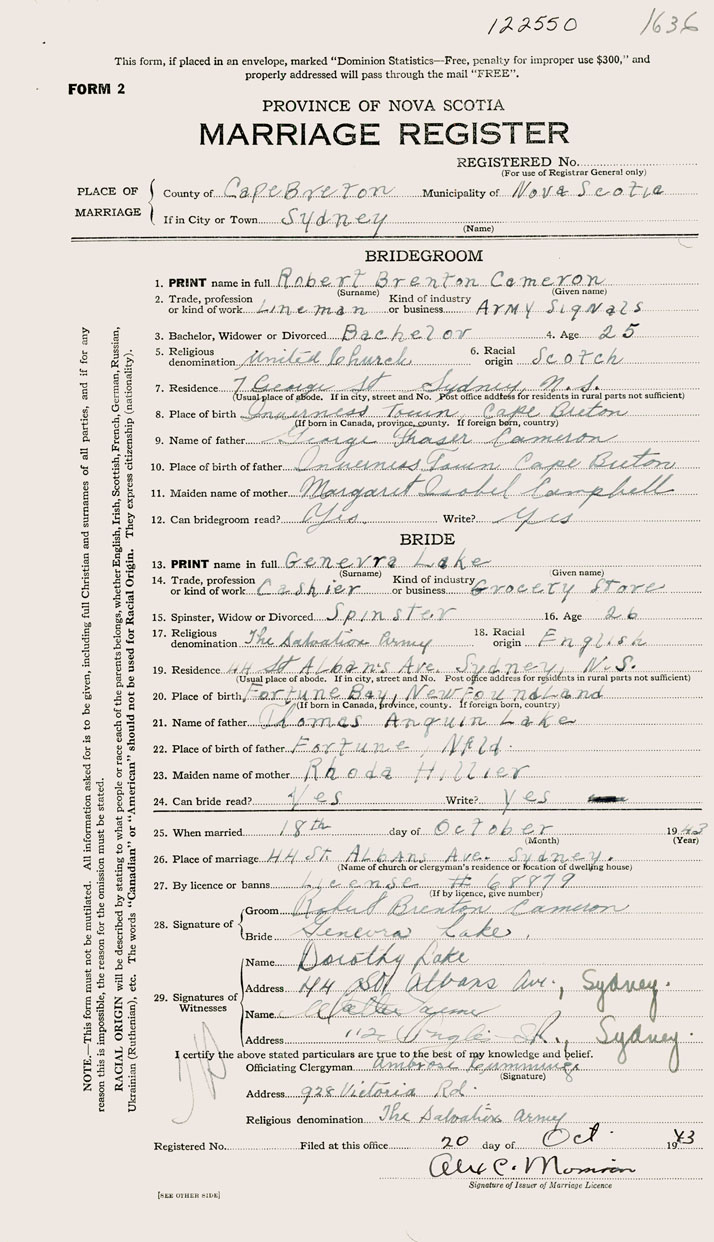 122550 1636
This form, if placed in an envelope, marked "Dominion Statistics—Free, penalty for improper use $300," and
properly addressed will pass through the mail "FREE".
FORM 2
PROVINCE OF NOVA SCOTIA
MARRIAGE REGISTER
REGISTERED No.
(For use of Registrar General only)
PLACE OF MARRIAGE
County of Cape Breton Municipality of Nova Scotia
If in City or Town Sydney
(Name)
BRIDEGROOM
1. PRINT name in full Robert Brenton Cameron
(Surname) (Given name)
2. Trade, profession or kind of work Lineman Kind of industry or business Army Signals
3. Bachelor, Widower or Divorced Bachelor 4. Age 25
5. Religious denomination United Church 6. Racial origin Scotch
7. Residence 7 George St Sydney, N.S.
(Usual place of abode. If in city, street and No. Post office address for residents in rural parts not sufficient)
8. Place of birth Inverness Town, Cape Breton
(If born in Canada, province, county. If foreign born, country)
9. Name of father George Fraser Cameron
10. Place of birth of father Inverness Town Cape Breton
11. Maiden name of mother Margaret Isobel Campbell
12. Can bridegroom read? Yes Write? Yes
BRIDE
13. PRINT name in full Genevra Lake
(Surname) (Given name)
14. Trade, profession or kind of work Cashier Kind of industry or business Grocety Store
15. Spinster, Widow or Divorced Spinster 16. Age 26
17. Religious denomination The Salvation Army 18. Racial origin English
19. Residence 44 St Albans Ave. Sydney, N.S.
(Usual place of abode. If in city, street and No. Post office address for residents in rural parts not sufficient)
20. Place of birth Fortune Bay, Newfoundland
(If born in Canada, province, county. If foreign born, country)
21. Name of father Thomas Anguin Lake
22. Place of birth of father Fortune, Nfld.
23. Maiden name of mother Rhoda Hillier
24. Can bride read? Yes Write? Yes
25. When married 18th day of October 1943
(Month) (Year)
26. Place of marriage 44 St. Albans Ave. Sydney.
(Name of church or clergyman's residence or location of dwelling house)
27. By licence or banns License # 68879
(If by licence, give number)
28. Signature of
Groom Robert Brenton Cameron
Bride Genevra Lake.
29. Signatures of Witnesses
Name Dorothy Lake
Address 44 St Albans Ave., Sydney.
Name Walter
Address Sydney.
I certify the above stated particulars are true to the best of my knowledge and belief.
Officiating Clergyman Ambrose Cummings
(Signature)
Address 928 Victoria Rd.
Religious denomination The Salvation Army
Registered No. Filed at this office 20 day of Oct. 1943
Alex C. Morrison
Signature of Issuer of Marriage Licence
[SEE OTHER SIDE]
NOTE.—This form must not be mutilated. All information asked for is to be given, including full Christian and surnames of all parties, and if for any
reason this is impossible, the reason for the omission must be stated.
RACIAL ORIGIN will be described by stating to what people or race each of the parents belongs, whether English, Irish, Scottish, French, German, Russian,
Ukrainian (Ruthenian), etc. The words "Canadian" or "American" should not be used for Racial Origin. They express citizenship (nationality).